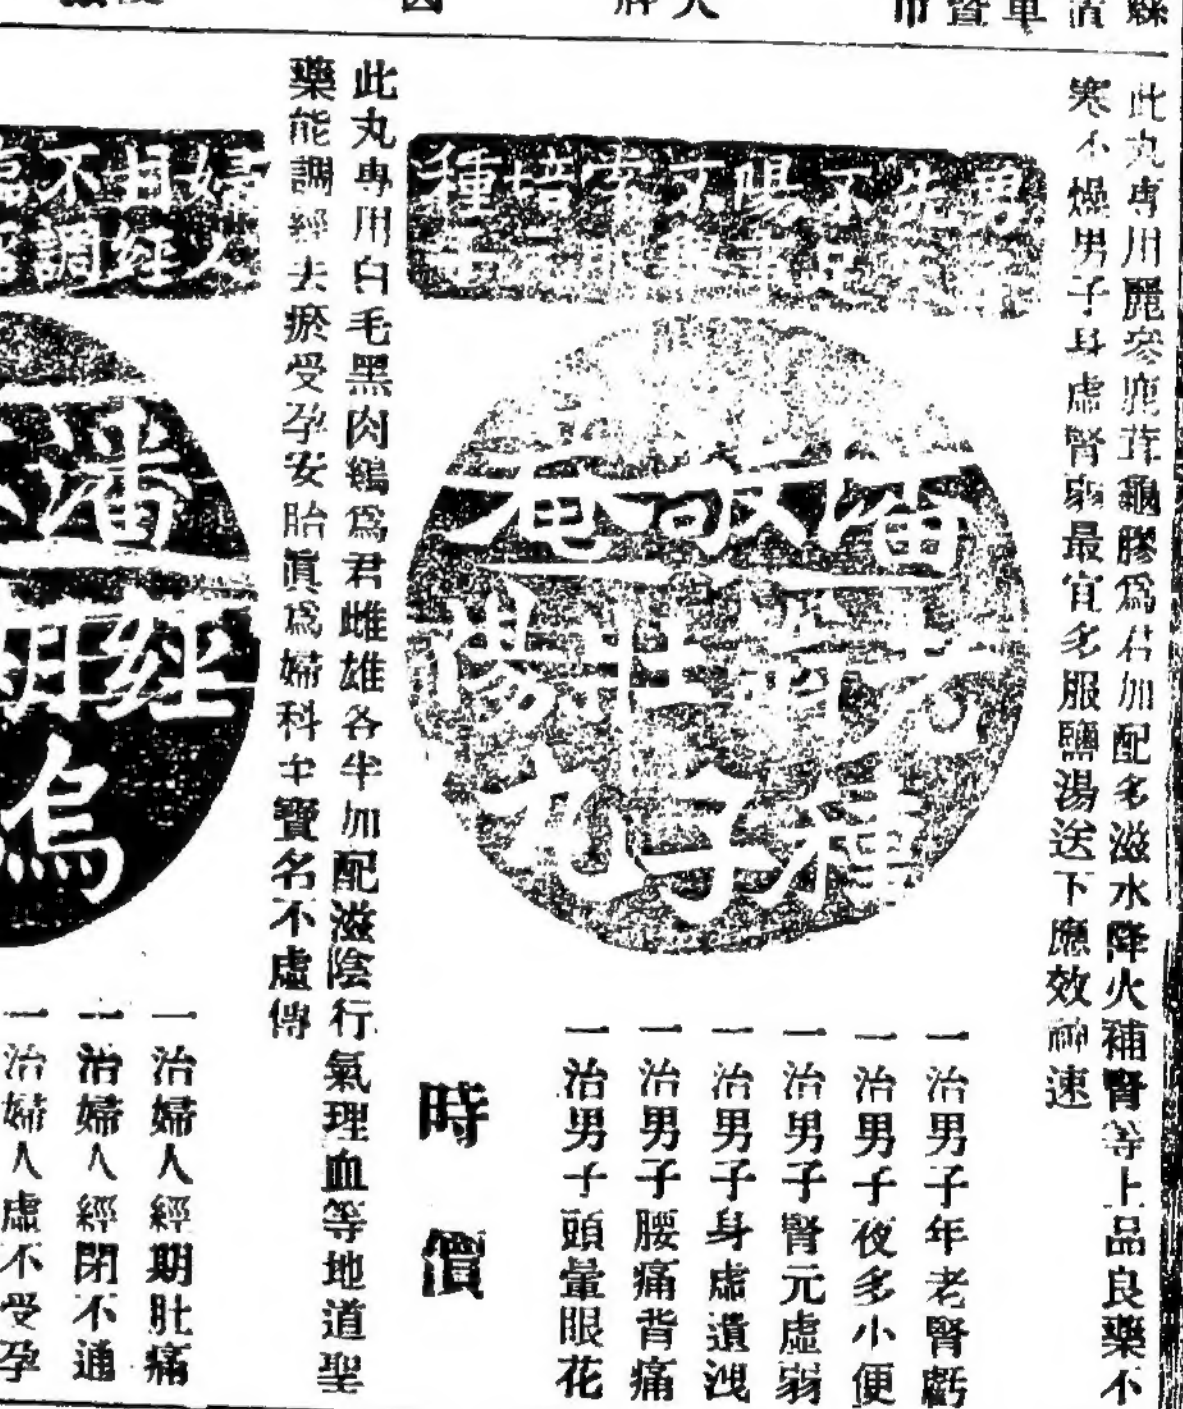 此丸専用麗參鹿茸龜膠爲君加配多滋水降火補腎等上品良藥不
寒不燥男子身虛腎弱最宜多服鹽湯送下應效神速
男
先
不足
陽
不
常服
培元
種子
潘敬菴
壯陽
種子丸
一治男子年老腎虧
一治男子夜多小便
一治男子腎元虛弱
一治男子身虛遺洩
一治男子腰痛背痛
一治男子頭暈眼花
時價
此丸專用白毛黑肉鷄爲君雌雄各半加配滋陰行氣理血等地道聖
藥能調經去瘀受孕安胎眞爲婦科之寶名不虛傳
婦人
月經
不調
潘
經期
烏
一治婦人經期肚痛
一治婦人經閉不通
一治婦人虛不受孕